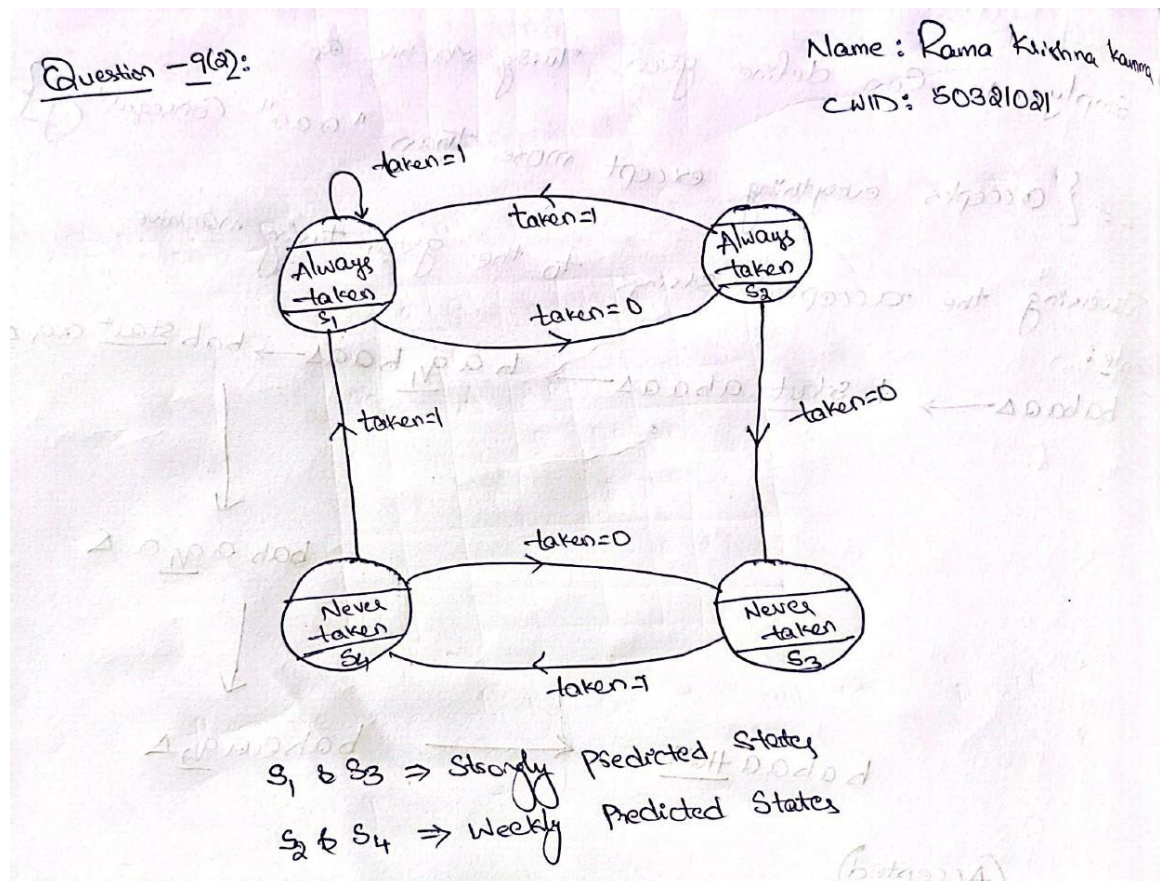 Question - 9(2):
Name: Rama Krishna
CWID: 50321021
taken=1
taken=1
Always
taken
S1
Always
taken
S2
taken=0
taken=1
taken=0
taken=0
Never
taken
S4
Never
taken
S3
taken=1
S1 & S3 ⇒ Strongly Predicted States
S2 & S4 ⇒ Weekly Predicted States